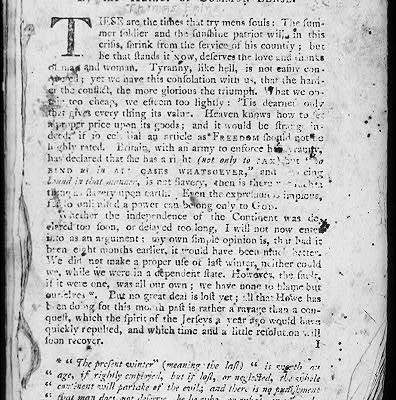 THESE are the times that try mens souls: The sum-
mer soldier and the sunshine patriot will, in this
crisis, shrink from the service of his country; but
he that stands it NOW, deserves the love and thanks
of man and woman. Tyranny, like hell, is not easily con-
quered; yet we have this consolation with us, that the hard-
er the conflict, the more glorious the triumph. What we ob-
tain too cheap, we esteem too lightly: 'Tis dearness only
that gives every thing its value. Heaven knows how to set
a proper price upon its goods; and it would be strange in-
deed, if so celestial an article as FREEDOM should not be
highly rated. Britain, with an army to enforce her tyranny,
has declared that she has a right (not only to TAX) but "to
BIND us in ALL CASES WHATSOEVER," and if being
bound in that manner, is not slavery, then is there not such a
thing as slavery upon earth. Even the expression is impious,
for so unlimited a power can belong only to GOD.
Whether the independence of the Continent was de-
clared too soon, or delayed too long, I will not now enter
into as an argument; my own simple opinion is, that had it
been eight months earlier, it would have been much better.
We did not make a proper use of last winter, neither could
we, while we were in a dependent state. However, the fault,
if it were one, was all our own; we have none to blame but
ourselves*. But no great deal is lost yet; all that Howe has
been doing for this month past is rather a ravage than a con-
quest, which the spirit of the Jerseys a year ago would have
quickly repulsed, and which time and a little resolution will
soon recover.
I
* "The present winter" (meaning the last) "is worth an
age, if rightly employed, but if lost, or neglected, the whole
continent will partake of the evil; and there is no punishment
that man does not deserve, be he who, or what,